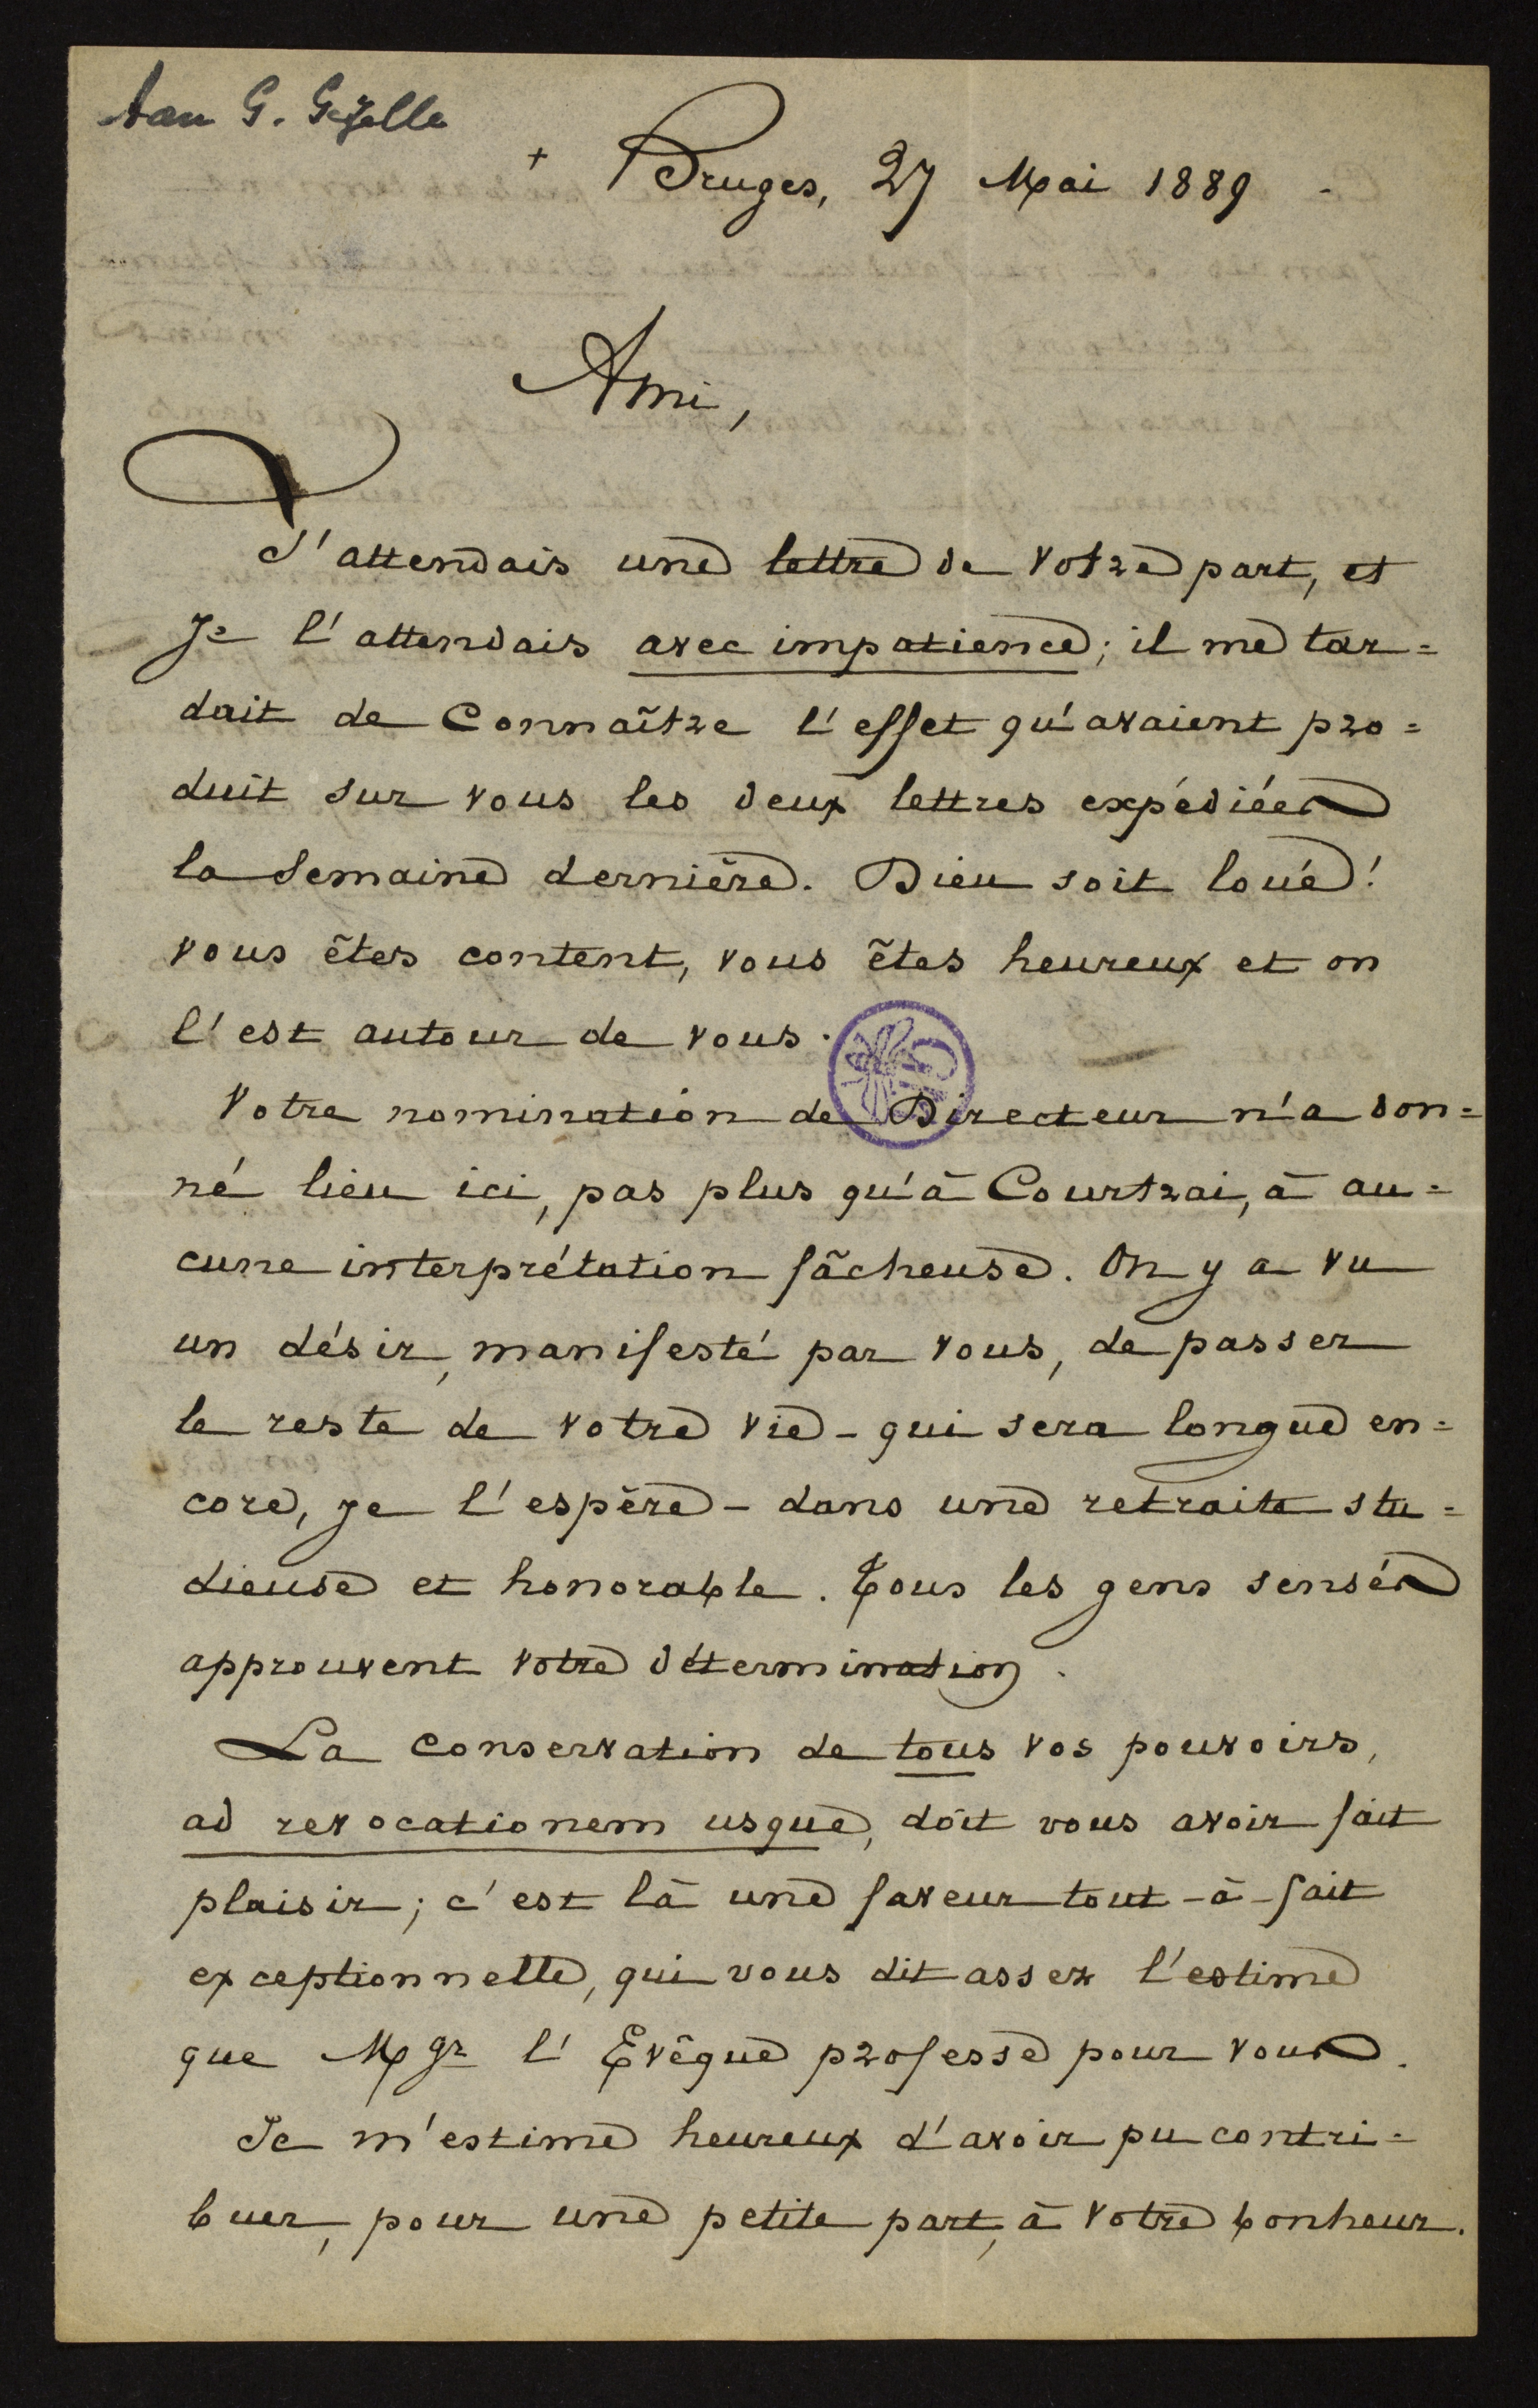 Aan G. Gezelle
+ Bruges, 27 Mai 1889.
Ami,
J'attendais une lettre de votre part, et
je l'attendais avec impatience; il me tar=
dait de connaître l'effet qu'avaient pro=
duit sur vous les deux lettres expédiées
la semaine dernière. Dieu soit loué!
vous êtes content, vous êtes heureux et on
l'est autour de vous.
Votre nomination de Directeur n'a don=
né lieu ici, pas plus qu'à Courtrai, à au=
cune interprétation fâcheuse. On y a vu
un désir, manifesté par vous, de passer
le reste de votre vie - qui sera longue en=
core, je l'espère - dans une retraite stu=
dieuse et honorable. Tous les gens sensés
approuvent votre détermination.
La conservation de tous vos pouvoirs,
ad revocationem usque, doit vous avoir fait
plaisir; c'est là une faveur tout-à-fait
exceptionnelle, qui vous dit assez l'estime
que Mgr l'Evêque professe pour vous.
Je m'estime heureux d'avoir pu contri=
buer, pour une petite part, à votre bonheur.